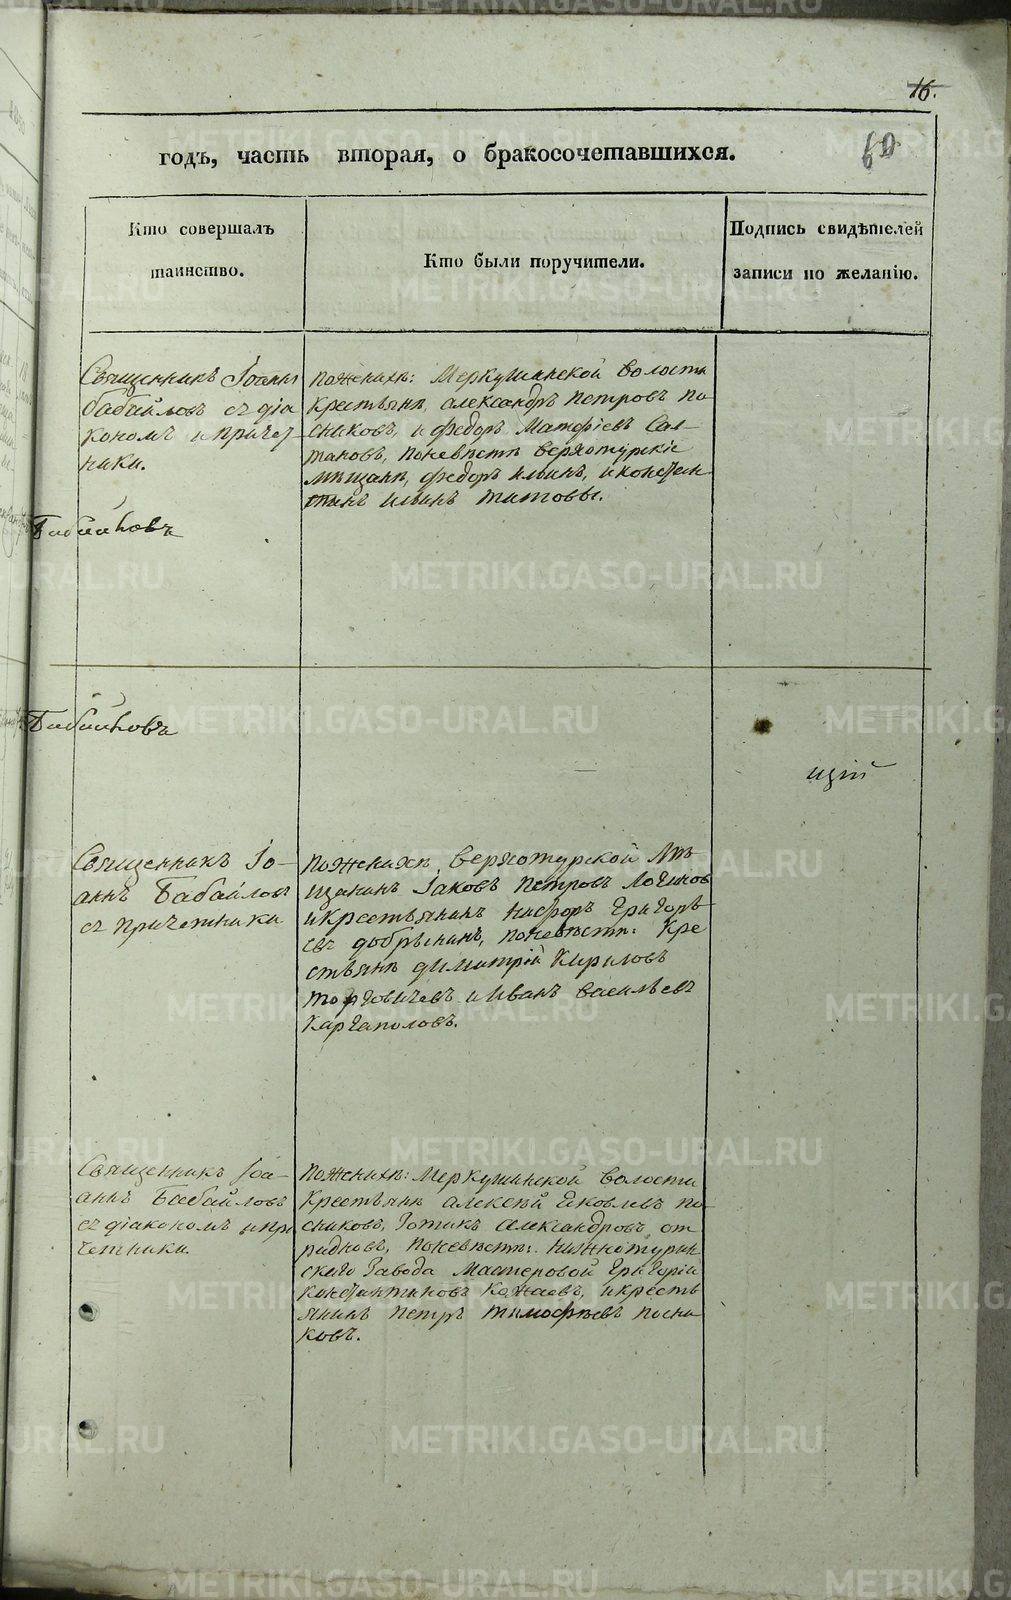 16.
60
годъ, часть вторая, о бракосочетавшихся.
Кто совершалъ
таинство.
Кто были поручители.
Подпись свидѣтелей
записи по желанію.
Священникъ Іоаннъ
Бабайловъ съ діа
кономъ и причет
ники.
пожених: Меркушинской волости
крестьяне, александръ петровъ по
сниковъ, и федоръ Матфіевъ Сал
тановъ, поневѣстѣ верхотурскіе
мѣщане, федоръ ильинъ, и констан
тинъ ильинъ титовы.
Священникъ Іо-
аннъ Бабайловъ
съ причетники
пожениху Верхотурской Мѣ
щанинъ Іаковъ Петровъ Логинов
и крестьянинъ Никфоръ Григорь
евъ добрынинъ, поневѣстѣ: Кре
стьяне димитрій Кириловъ
торговичевъ и Иванъ васильевъ
Каргаполовъ.
Священникъ Іоа-
ннъ Бабайловъ
съ діакономъ и при
четники.
пожених: Меркушинской волости
крестьяне алексѣй яковлевъ по
сниковъ, Готикъ александровъ от
радновъ, поневѣстѣ: нижнотурин
скаго Завода Мастеровой григорій
констянтиновъ Кожаевъ, и кресть
янинъ петръ тимофѣевъ посни
ковъ.
цій
METRIKI.GASO-URAL.RU